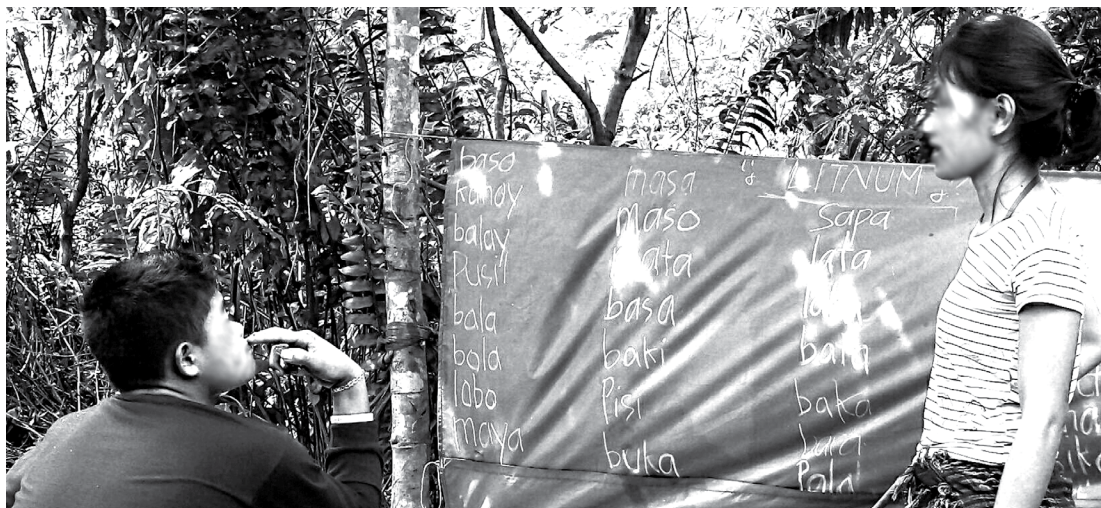 baso
kahoy
balay
pusil
bala
bola
lobo
maya
masa
maso
mata
basa
baki
pisi
buka
LITNUM
sapa
lata
baka